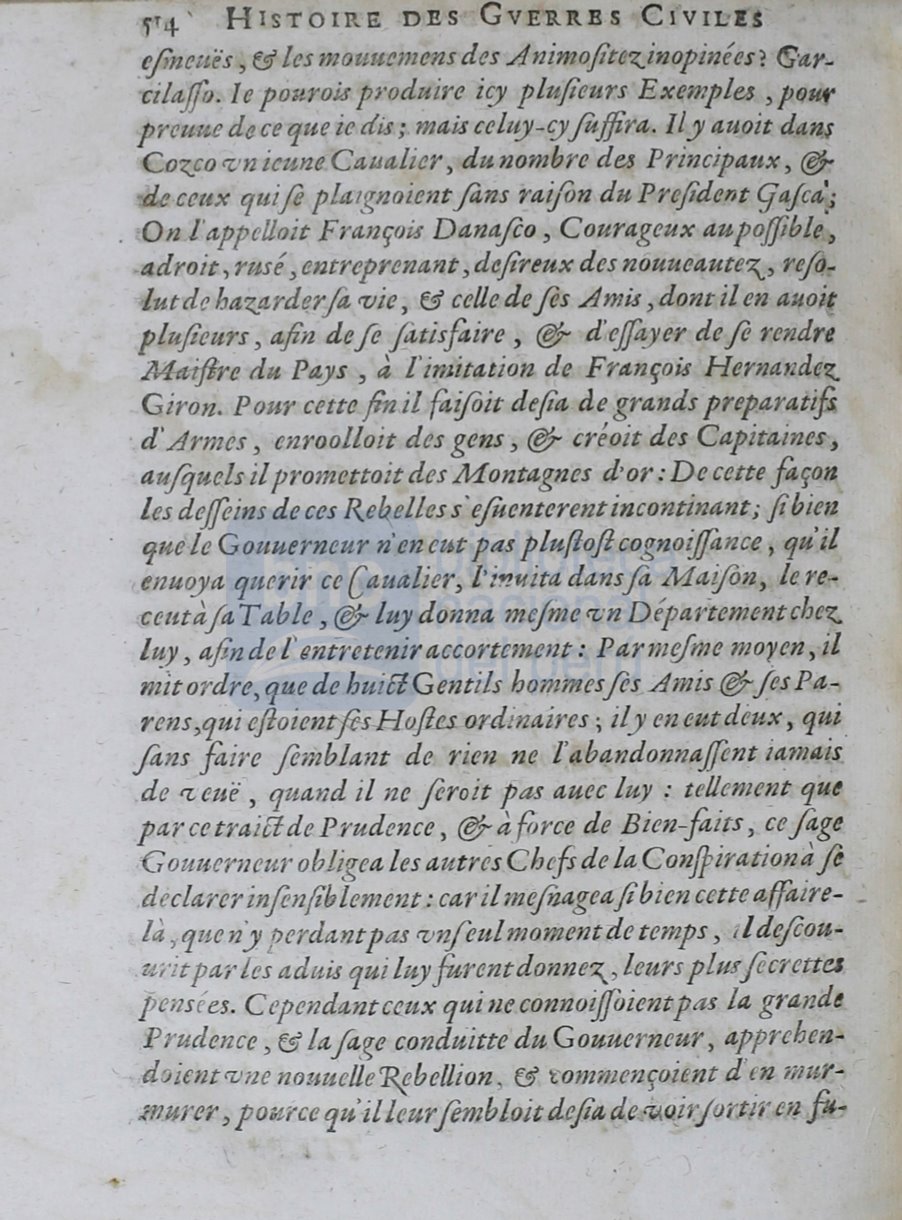 514 HISTOIRE DES GVERRES CIVILES
eſmeuës, & les mouuemens des Animoſitez inopinées? Gar-
cilaſſo. Ie pourois produire icy pluſieurs Exemples, pour
preuue de ce que ie dis; mais celuy-cy ſuffira. Il y auoit dans
Cozco vn ieune Caualier, du nombre des Principaux, &
de ceux qui ſe plaignoient ſans raiſon du Preſident Gaſca;
On l'appelloit François Danaſco, Courageux au poſſible,
adroit, ruſé, entreprenant, deſireux des nouueautez, reſo-
lut de hazarder ſa vie, & celle de ſes Amis, dont il en auoit
pluſieurs, afin de ſe ſatisfaire, & d'eſſayer de ſe rendre
Maiſtre du Pays, à l'imitation de François Hernandez
Giron. Pour cette fin il faiſoit deſia de grands preparatifs
d'Armes, enroolloit des gens, & créoit des Capitaines,
auſquels il promettoit des Montagnes d'or: De cette façon
les deſſeins de ces Rebelles s'eſuenterent incontinant; ſi bien
que le Gouuerneur n'en eut pas pluſtoſt cognoiſſance, qu'il
enuoya querir ce Caualier, l'inuita dans ſa Maiſon, le re-
ceut à ſa Table, & luy donna meſme vn Département chez
luy, afin de l'entretenir accortement: Par meſme moyen, il
mit ordre, que de huict Gentils hommes ſes Amis & ſes Pa-
rens, qui eſtoient ſes Hoſtes ordinaires; il y en eut deux, qui
ſans faire ſemblant de rien ne l'abandonnaſſent iamais
de veuë, quand il ne ſeroit pas auec luy: tellement que
par ce traict de Prudence, & à force de Bien-faits, ce ſage
Gouuerneur obligea les autres Chefs de la Conſpiration à ſe
declarer inſenſiblement: car il meſnagea ſi bien cette affaire-
là, que n'y perdant pas vn ſeul moment de temps, il deſcou-
urit par les aduis qui luy furent donnez, leurs plus ſecrettes
penſées. Cependant ceux qui ne connoiſſoient pas la grande
Prudence, & la ſage conduitte du Gouuerneur, apprehen-
doient vne nouuelle Rebellion, & commençoient d'en mur-
murer, pource qu'il leur ſembloit deſia de voir ſortir en fu-